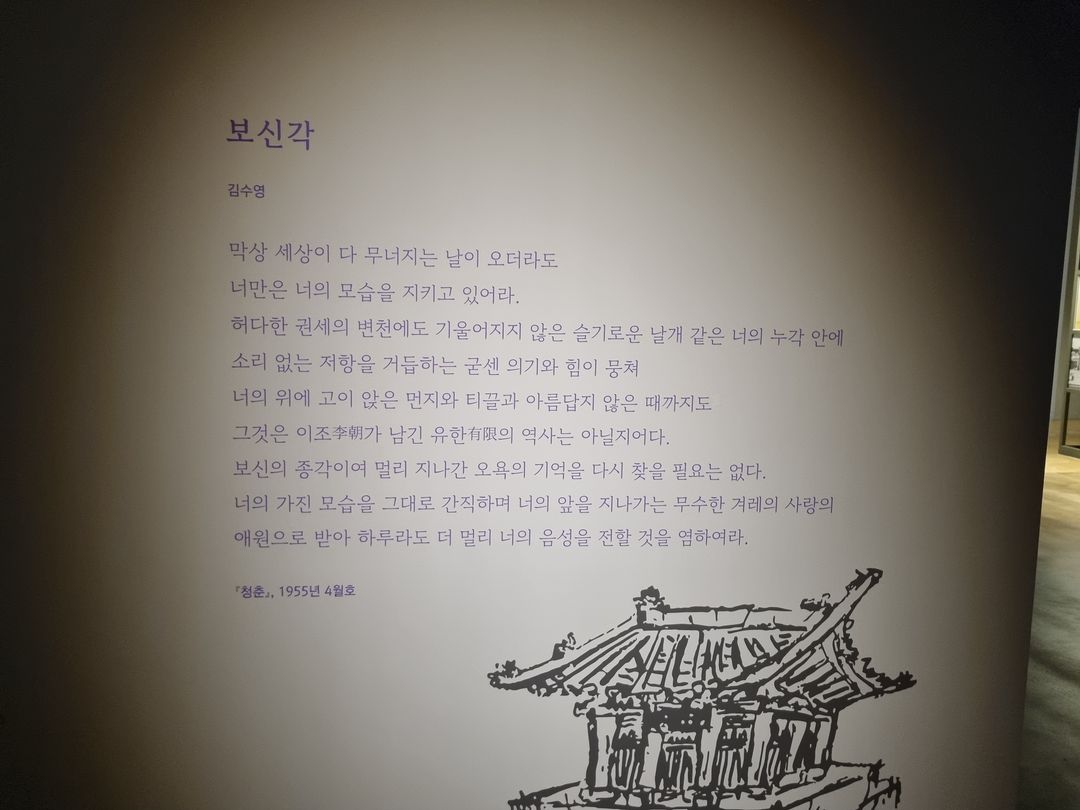 보신각
김수영
막상 세상이 다 무너지는 날이 오더라도
너만은 너의 모습을 지키고 있어라.
허다한 권세의 변천에도 기울어지지 않은 슬기로운 날개 같은 너의 누각 안에
소리 없는 저항을 거듭하는 굳센 의기와 힘이 뭉쳐
너의 위에 고이 앉은 먼지와 티끌과 아름답지 않은 때까지도
그것은 이조李朝가 남긴 유한有限의 역사는 아닐지어다.
보신의 종각이여 멀리 지나간 오욕의 기억을 다시 찾을 필요는 없다.
너의 가진 모습을 그대로 간직하며 너의 앞을 지나가는 무수한 겨레의 사랑의
애원으로 받아 하루라도 더 멀리 너의 음성을 전할 것을 염하여라.
『청춘』, 1955년 4월호